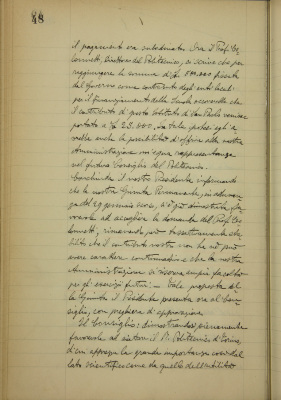 48
il pagamento era subordinato. Ora il Prof. Co
lonnetti, Direttore del Politecnico, ci scrive che per
raggiungere la somma di £ 500.000 fissata
dal Governo come contributo degli enti locali
per il finanziamento della Scuola occorrerebbe che
il contributo di questo Istituto di San Paolo venisse
portato a £ 25.000. In tale ipotesi egli a
vrebbe anche la possibilità di offrire alla nostra
Amministrazione una rappresentanza
nel futuro Consiglio del Politecnico.
Conchiude il nostro Presidente informando
che la nostra Giunta Permanente, in adunan
za del 29 gennaio, si è già dimostrata fa
vorevole ad accogliere la domanda del Prof. Co
lonnetti, rimanendo però tassativamente sta
bilito che il contributo nostro non ha nè può
avere carattere continuativo e che la nostra
Amministrazione si riserva ampia facoltà
per gli esercizi futuri. - Tale proposta del
la Giunta il Presidente presenta ora al Con
siglio, con preghiera di approvazione.
Il Consiglio: dimostrandosi pienamente
favorevole ad aiutare il R. Politecnico di Torino,
di cui apprezza la grande importanza così dal
lato scientifico come da quello dell'utilità